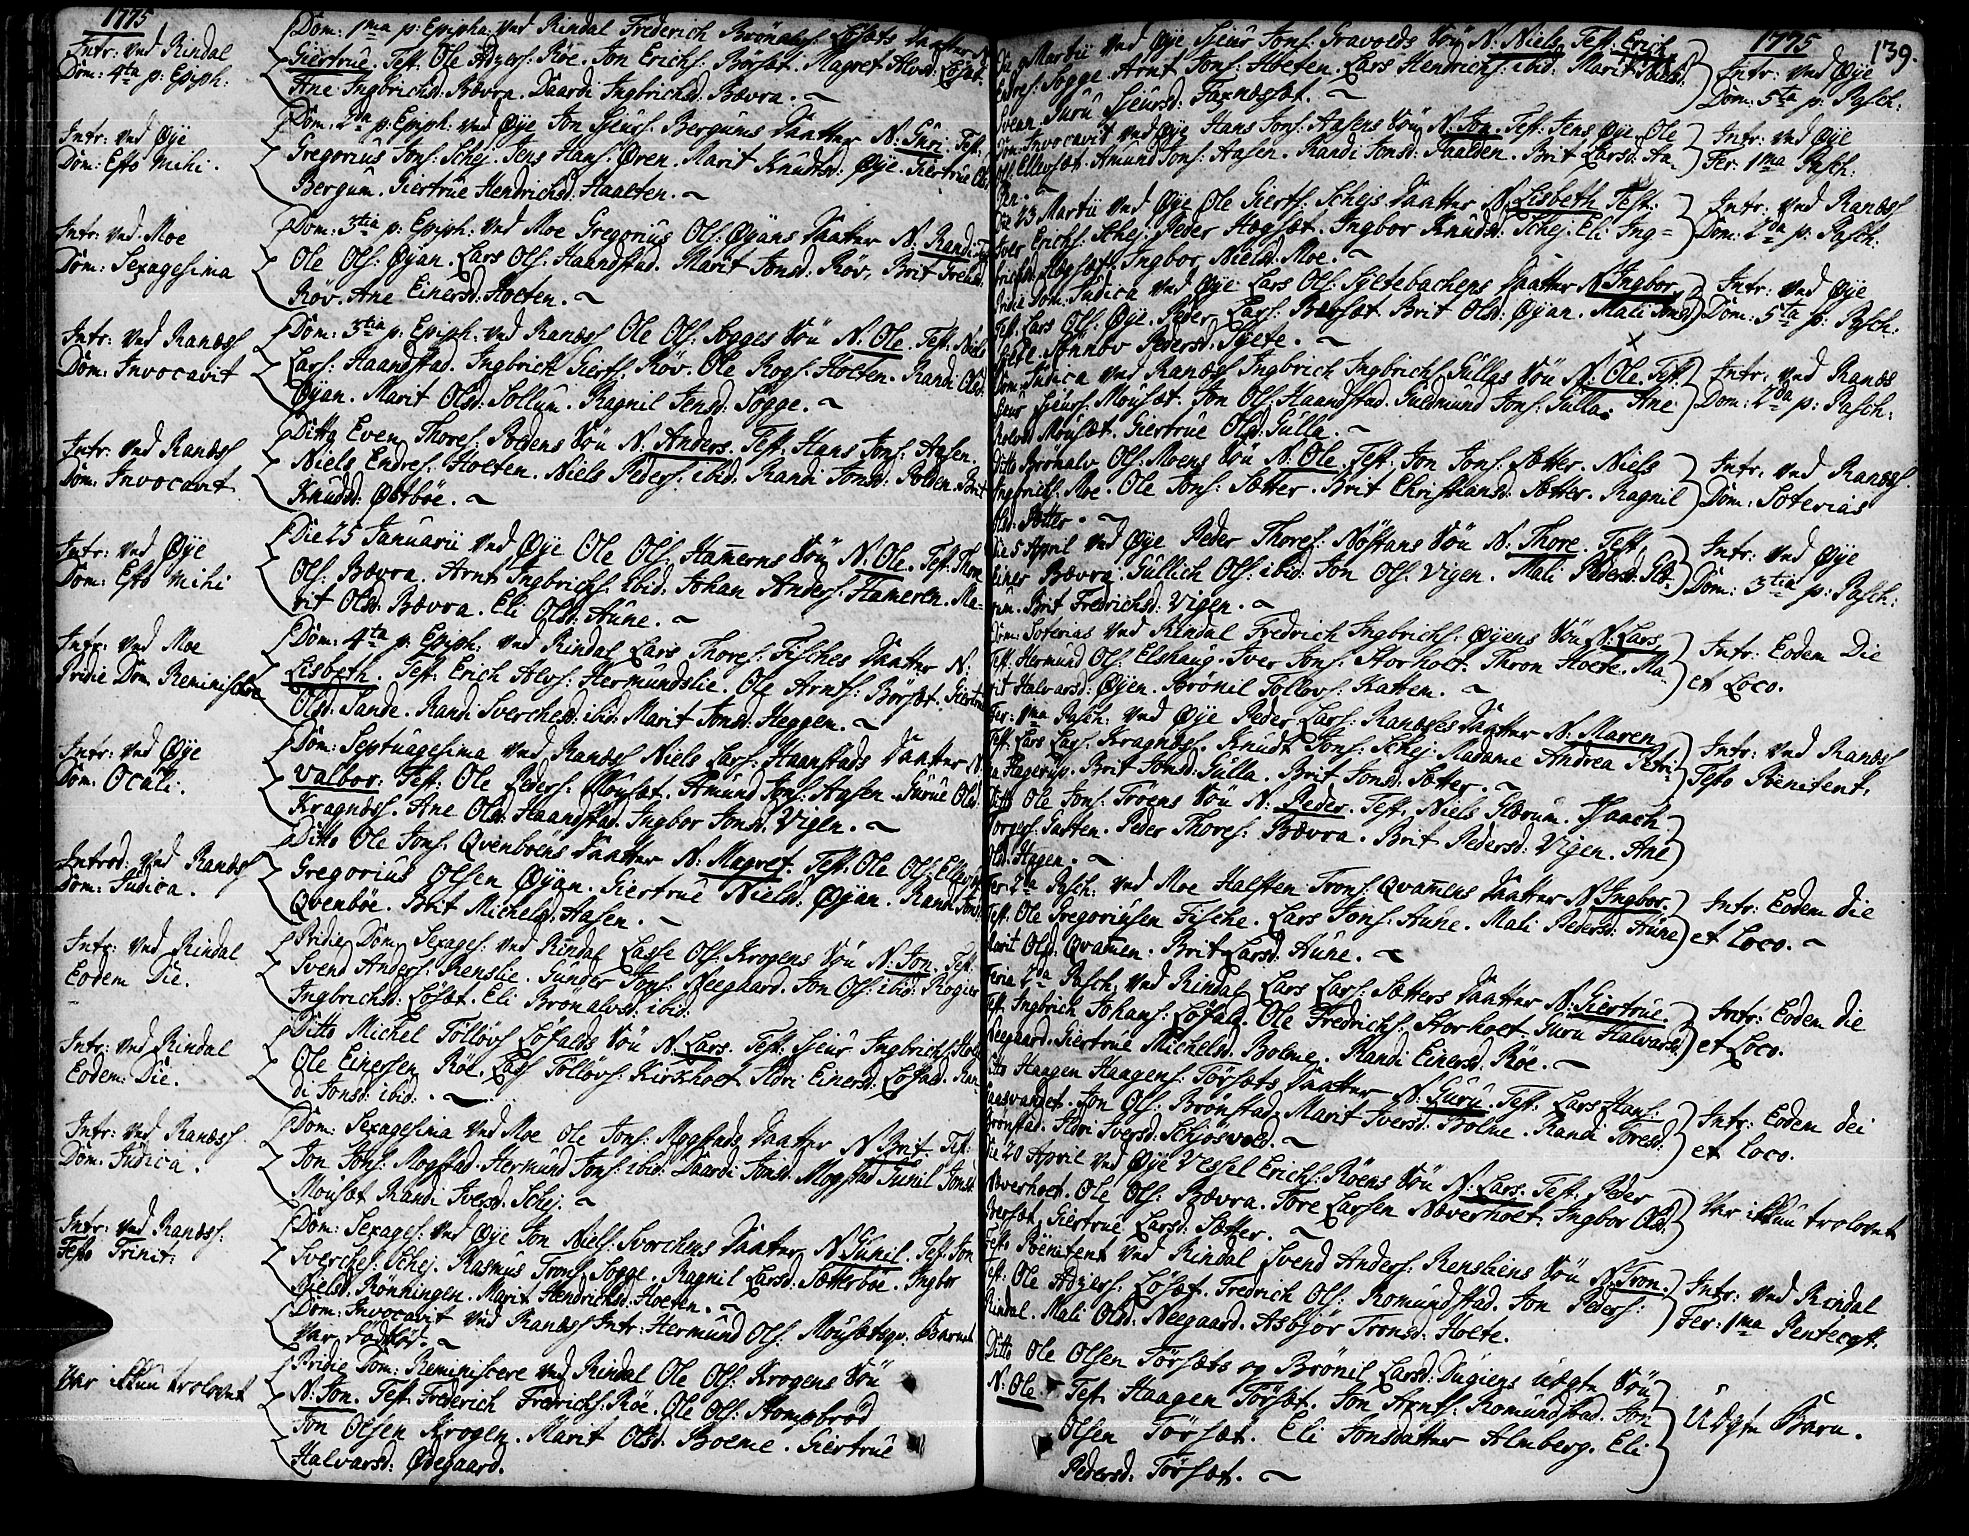 1775
Intr: ved Rindal
Dom: 4ta p: Epiph:
Dom: 1ma p: Epipha: ved Rindal Frederich Brönals: Löfæts Daatter N:
Giertrue. Test: Ole Adzers: Röe. Jon Erichs: Börsæt. Magret Alvsd: Löfæt.
Ane Ingbrichsd: Bævra. Daardi Ingbrichsd: Bævra. ~
Intr: ved Øye
Dom: Esto Mihi.
Dom: 2da p: Epiph: ved Øye Jon Sjeurs: Bergums Daatter N: Guri. Test:
Gregorius Jons: Schej. Jens Hans: Ören. Marit Knudtsd: Øye. Giertrue Ols:
Bergum. Giertrue Hendrichsd: Haaeten. ~
Intr: ved Moe
Dom: Sexagesima
Dom: 3tia p: Epiph: ved Moe Gregorius Ols: Øyans Daatter N: Randi. Test:
Ole Ols: Øyan. Lars Ols: Haandstad. Marit Jonsd: Röv. Brit
Röv. Ane Einersd: Hoeten. ~
Intr: ved Ranæs
Dom: Invocavit
Dom: 3tia p: Epiph: ved Ranæs Ole Ols: Sogges Sön N: Ole. Test: Niels
Lars: Haandstad. Ingbricht Gierts: Röv. Ole Rogs: Hoeten. Randi Olsd:
Øyan. Marit Olsd: Sollum. Ragnil Jensd: Sogge. ~
Intr: ved Ranæs
Dom: Invocavit
Ditto Even Thores: Poldens Sön N: Anders. Test: Hans Jons: Aasen.
Niels Endres: Hoeten. Niels Peders: ibid. Randi Jonsd: Polden. Brit
Knudsd: Östböe. ~
Intr: ved Øye
Dom: Esto Mihi
Die 25 Januarii ved Øye Ole Ols: Hamerns Sön N: Ole. Test: Thore
Ols: Bævra. Arnt Ingbrichs: ibid. Johan Anders: Hameren. Ma-
rit Olsd: Bævra. Eli Olsd: Aune. ~
Intr: ved Moe
Pridie Dom: Reminiscere
Dom: 4ta p: Epiph: ved Rindal Lars Thores: Fisches Daatter N:
Lisbeth. Test: Erich Alvs: Hermundslie. Ole Arnts: Börsæt. Giertrue
Olsd: Sande. Randi Sverchesd: ibid. Marit Jonsd: Heggem. ~
Intr: ved Øye
Dom: Oculi.
Dom: Septuagesima ved Ranæs Niels Lars: Haanstads Daatter N:
Valbor: Test: Ole Peders: Mousæt. Amund Jons: Aasen. Gurue Olsd:
Kragnæs. Ane Olsd: Haandstad. Ingbor Jonsd: Vigen. ~
Introd: ved Ranæs
Dom: Judica.
Ditto Ole Jons: Qvenböens Daatter N: Magret. Test: Ole Ols:
Gregorius Olsen Øyan. Giertrue Nielsd: Øyan. Randi Jonsd:
Qvenböe. Brit Michelsd: Aasen. ~
Intr: ved Rindal
Eodem Die.
Pridie Dom: Sexages: ved Rindal Lasse Ols: Krogens Sön N: Jon. Test:
Svend Anders: Renslie. Gunder Jons: Neegaard. Jon Ols: ibid: Rogier
Ingbrichsd: Löfæt. Eli Bronalvsd: ibid:
Intr: ved Rindal
Eodem: Die.
Ditto Michel Tollövs: Löfalds Sön N: Lars. Test: Sjeur Ingbrichs:
Ole Einersen Röe. Lars Tollövs: Kirkhoet. Ildri Einersd: Löfald. Ran-
di Jonsd: ibid: ~
Intr: ved Ranæs.
Dom: Judica.
Dom: Sexagesima ved Moe Ole Jons: Mogstads Daatter N: Brit. Test:
Jon Jons: Mogstad. Hermund Jons: ibid. Daardi Jonsd: Mogstad. Gunil Jonsd:
Mousæt. Randi Iversd: Schej. ~
Intr: ved Ranæs:
Festo Trinit:
Dom: Sexages: ved Øye Jon Niels: Svorchens Daatter N: Gunil. Test: Jon
Sverches: Schej. Rasmus Trons: Sogge. Ragnil Larsd: Sætterböe. Ingbor
Nielsd: Rönningen. Marit Hendrichsd: Hoeten. ~
Dom: Invocavit ved Ranæs Intr: Hermund Ols: Mousætsqv: Barnet
Var Dödföd. ~
Var ikkun trolovet
Pridie Dom: Reminiscere ved Rindal Ole Ols: Krogens Sön
N: Jon. Test: Frederich Fredrichs: Röe. Ole Ols: Stompbröd
Jon Olsen Krogen. Marit Olsd: Bolme. Giertrue
Halvarsd: Ödegaard.
1775 139.
Martii ved Øye Sjeur Jons: Gravolds Sön N: Niels. Test: Erich
Endres: Sogge. Arnt Jons: Hoeten. Lars Hendrichs: ibid. Marit
Svean. Guru Sjeursd: Faxnæsæt. ~
Intr: ved Øye
Dom: 5ta p: Pasch:
Dom: Invocavit ved Øye Hans Jons: Aasens Sön N: Jon. Test: Jens Øye. Ole
Ols: Ellevsæt. Amund Jons: Aasen. Randi Jonsd: Paalden. Brit Larsd: Aa-
sen. ~
Intr: ved Øye
Fer: 1ma Pasch:
Die 23 Martii ved Øye Ole Gierts: Schejs Daatter N: Lisbeth. Test:
Iver Erichs: Schej. Peder Hagsæt. Ingbor Knudsd: Schej. Eli Ing-
brichsd: Hagsæt. Ingbor Nielsd: Moe. ~
Intr: ved Ranæs
Dom: 2da p: Pasch:
Pridie Dom: Judica ved Øye Lars Ols: Syltebachens Daatter N: Ingbor.
Test: Lars Ols: Øye. Peder Lars: Bæsæt. Brit Olsd: Øyan. Mali Jonsd:
Sönnöv Pedersd: Sylte. ~
Intr: ved Øye
Dom: 5ta p: Pasch:
Dom: Judica ved Ranæs Ingbrich Ingbrichs: Gullas Sön N: Ole. Test:
Sjeur Sjeurs: Mousæt. Jon Ols: Haandstad. Guldmund Jons: Gulla. Ane
Rolvsd: Mousæt. Giertrue Olsd: Gulla. ~
Intr: ved Ranæs
Dom: 2da p: Pasch:
Ditto Bronalv Ols: Moens Sön N: Ole. Test: Jon Jons: Sætter. Niels
Ingbrichs: Moe. Ole Jons: Sætter. Brit Christiansd: Sætter. Ragnil
Olsd: Sætter. ~
Intr: ved Ranæs.
Dom: Soterias
Die 5 April ved Øye Peder Thores: Nöstans Sön N: Thore. Test:
Einer Bævra. Gullich Ols: ibid: Jon Ols: Vigen. Mali Pedersd: Glæ-
rum. Brit Fredrichsd: Vigen. ~
Intr: ved Øye
Dom: 3tia p: Pasch:
Dom: Soterias ved Rindal Fredrich Ingbrichs: Øyens Sön N: Lars.
Test: Hermund Ols: Elshaug. Iver Jons: Storhoet. Thron Hoete. Ma-
rit Halvarsd: Øyen. Brönil Tollovs: Kattem. ~
Intr: Eodem Die
et Loco.
Fer: 1ma Pasch: ved Øye Peder Lars: Ranæses Daatter N: Maren.
Test: Lars Lars: Kragnæs. Knudt Jons: Schej. Madame Andrea Petri-
na Hagerup. Brit Jonsd: Gulla. Brit Jonsd: Sætter. ~
Intr: ved Ranæs
Festo Poenitent:
Ditto Ole Jons: Tröens Sön N: Peder. Test: Niels Glærum. Isaach
Torgers: Gasten. Peder Thores: Bævra. Brit Pedersd: Vigen. Ane
Olsd: Hagen. ~
Fer: 2da Pasch: ved Moe Halsten Trons: Qvamens Daatter N: Ingbor.
Test: Ole Gregoriusen Fische. Lars Jons: Aune. Mali Pedersd: Aune
Marit Olsd: Qvamen. Brit Larsd: Aune. ~
Intr: Eodem die
et Loco. ~
Feria 2da Pasch: ved Rindal Lars Lars: Sætters Daatter N: Giertrue.
Test: Ingbrich Johans: Löfald. Ole Fredrichs: Storhoet. Guru Halvarsd:
Neegaard. Giertrue Michelsd: Bolme. Randi Einersd: Röe. ~
Intr: Eodem die
et Loco.
Ditto Haagen Haagens: Törsæts Daatter N: Guru. Test: Lars Hans:
Gaasvandet. Jon Ols: Brönstad. Marit Iversd: Bolme. Randi Toresd:
Brönstad. Ildri Iversd: Schjösvold. ~
Intr: Eodem dei
et loco.
Die 20 April ved Øye Vessel Erichs: Röens Sön N: Lars. Test: Peder
Næverhoet. Ole Ols: Bævra. Tore Larsen Næverhoet. Ingbor Olsd:
Giertrue Larsd: Sætter. ~
Var ikkun trolovet
Festo Pönitent ved Rindal Svend Anders: Rensliens Sön N: Tron.
Test: Ole Adzers: Löfæt. Fredrich Ols: Romundstad. Jon Peders:
Rindal. Mali Olsd: Neegaard. Asbjör Tronsd: Holte.
Intr: ved Rindal
Fer: 1ma Pentecost:
Ditto Ole Olsen Törsæts og Brönil Larsd: Dugiens Uægte Sön
N: Ole Test: Haagen Törsæt. Jon Arnts: Romundstad. Jon
Olsen Törsæt. Eli Jonsdatter Almberg. Eli
Pedersd: Törsæt. ~
Uægte Barn.